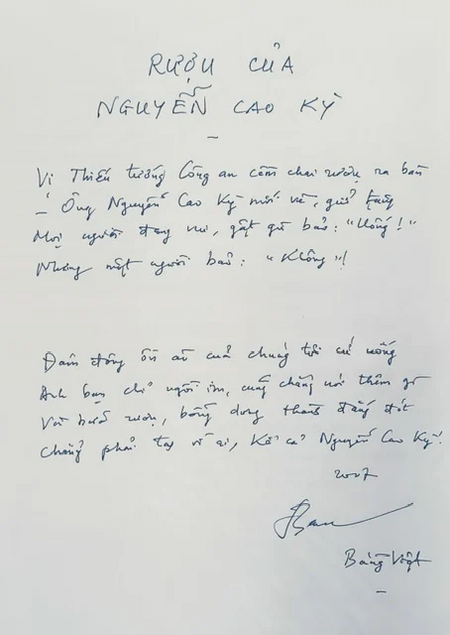 RƯỢU CỦA
NGUYỄN CAO KỲ
–
Vị Thiếu tướng Công an cầm chai rượu ra bàn
– Ông Nguyễn Cao Kỳ mới về, gửi tặng
Mọi người đang vui, gật gù bảo: "Uống!"
Nhưng một người bảo: "Không"!
Đám đông ồn ào của chúng tôi cứ uống
Anh bạn chỉ ngồi im, cũng chẳng nói thêm gì
Và buổi rượu, bỗng dưng thành đắng đót
Chẳng phải tại vì ai, kể cả Nguyễn Cao Kỳ!
2007
Bằng Việt
–